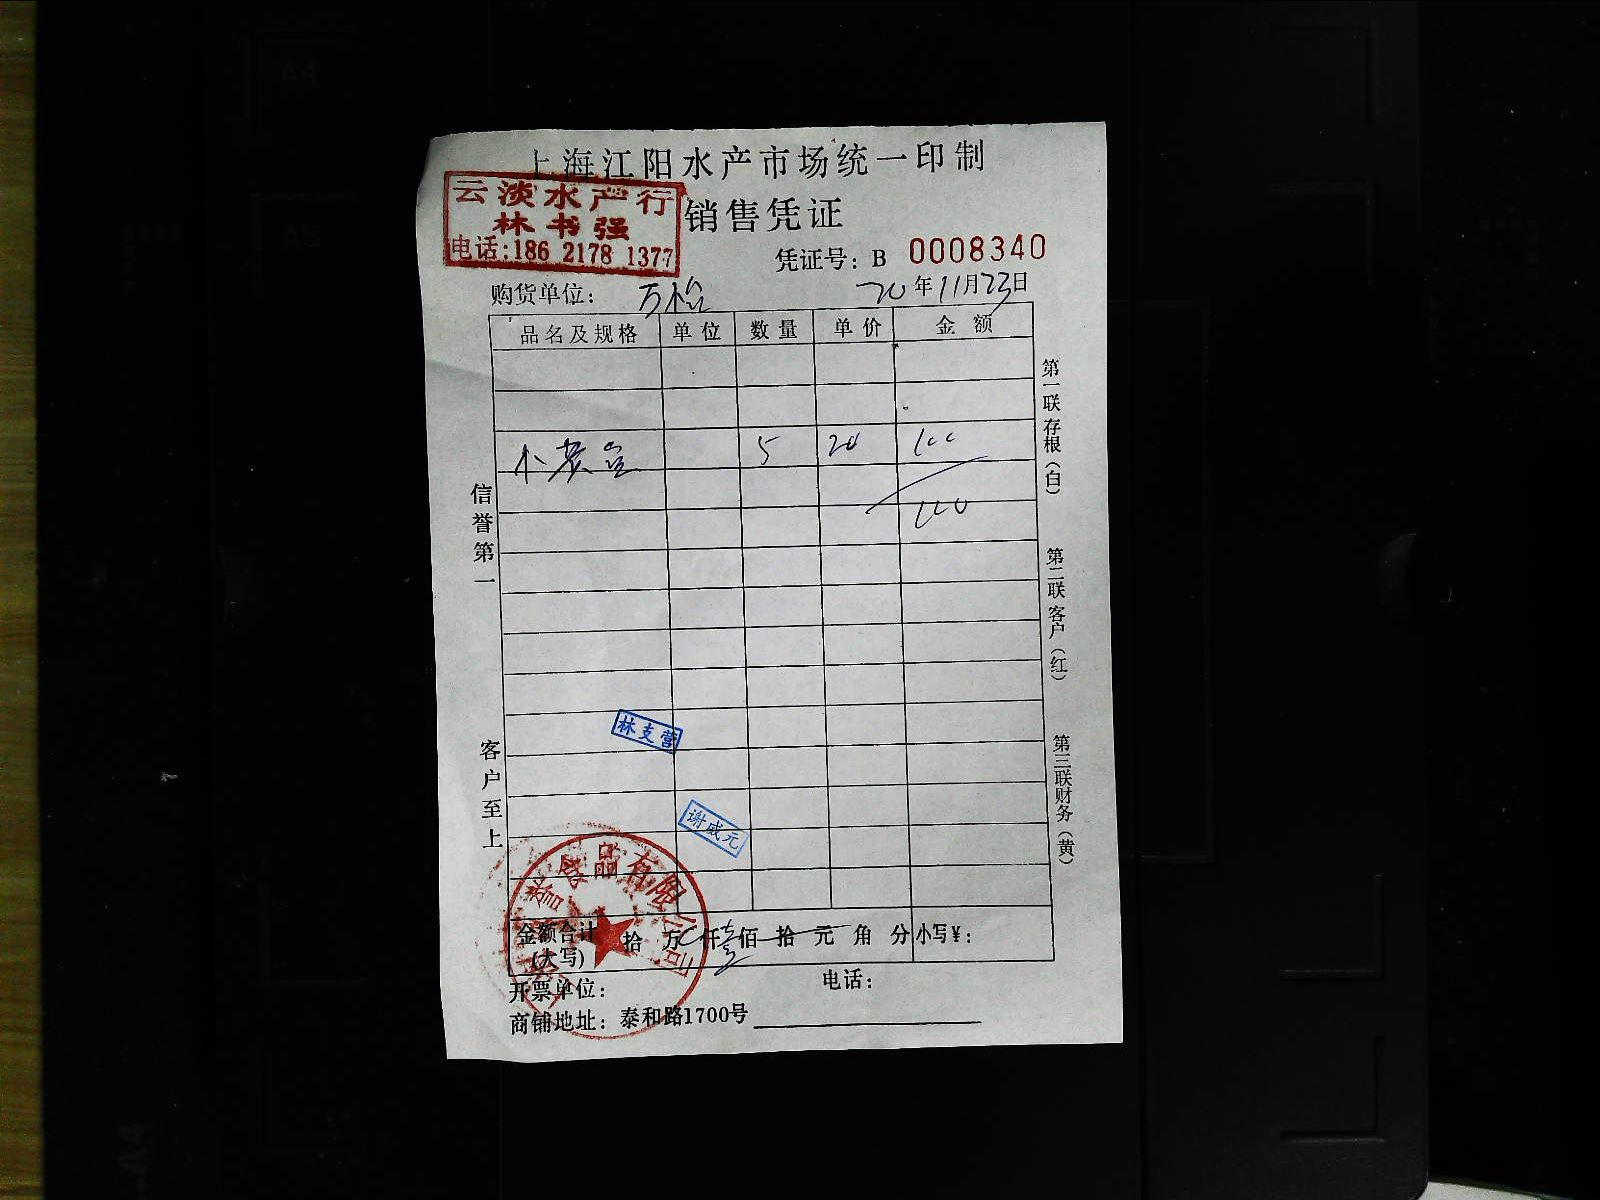 上海江阳水产市场统一印制
云淡水产行
林书强
电话:186 2178 1377
销售凭证
凭证号: B 0008340
购货单位: 万 20年11月23日
品名及规格 单位 数量 单价 金额
小黄 5 20 100
100
信誉第一
客户至上
第一联存根(白)
第二联客户(红)
第三联财务(黄)
林支营
谢威元
食品有限公司
金额合计(大写) 拾 万 仟 壹佰 拾 元 角 分 小写¥:
开票单位: 电话:
商铺地址: 泰和路1700号